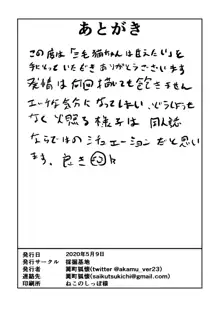 あとがき
この度は「三毛猫ちゃんは甘えたい」を
手にとっていただきありがとうございます
発情は何回描いても飽きません
エッチな気分になってしまい、どうしようも
なく火照る様子は同人誌
ならではのシチュエーションだと思い
ます。良き
発行日 2020年5月9日
発行サークル 採掘基地
発行者 罠町狐懐(twitter @akamu_ver23)
連絡先 罠町狐懐(saikutsukichi@gmail.com)
印刷所 ねこのしっぽ様